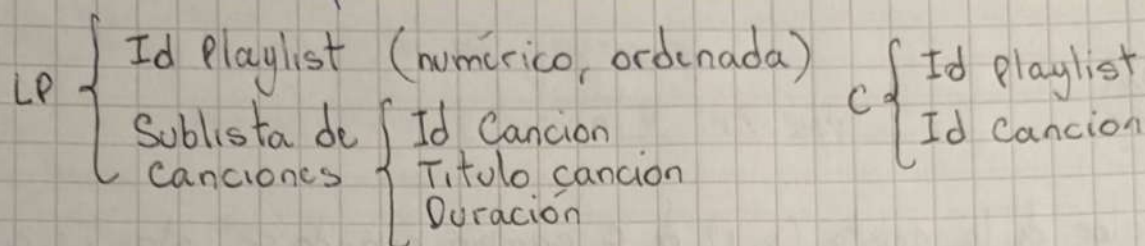 LP { Id Playlist (numérico, ordenada)
Sublista de canciones { Id Cancion
Titulo cancion
Duración
C { Id playlist
Id cancion